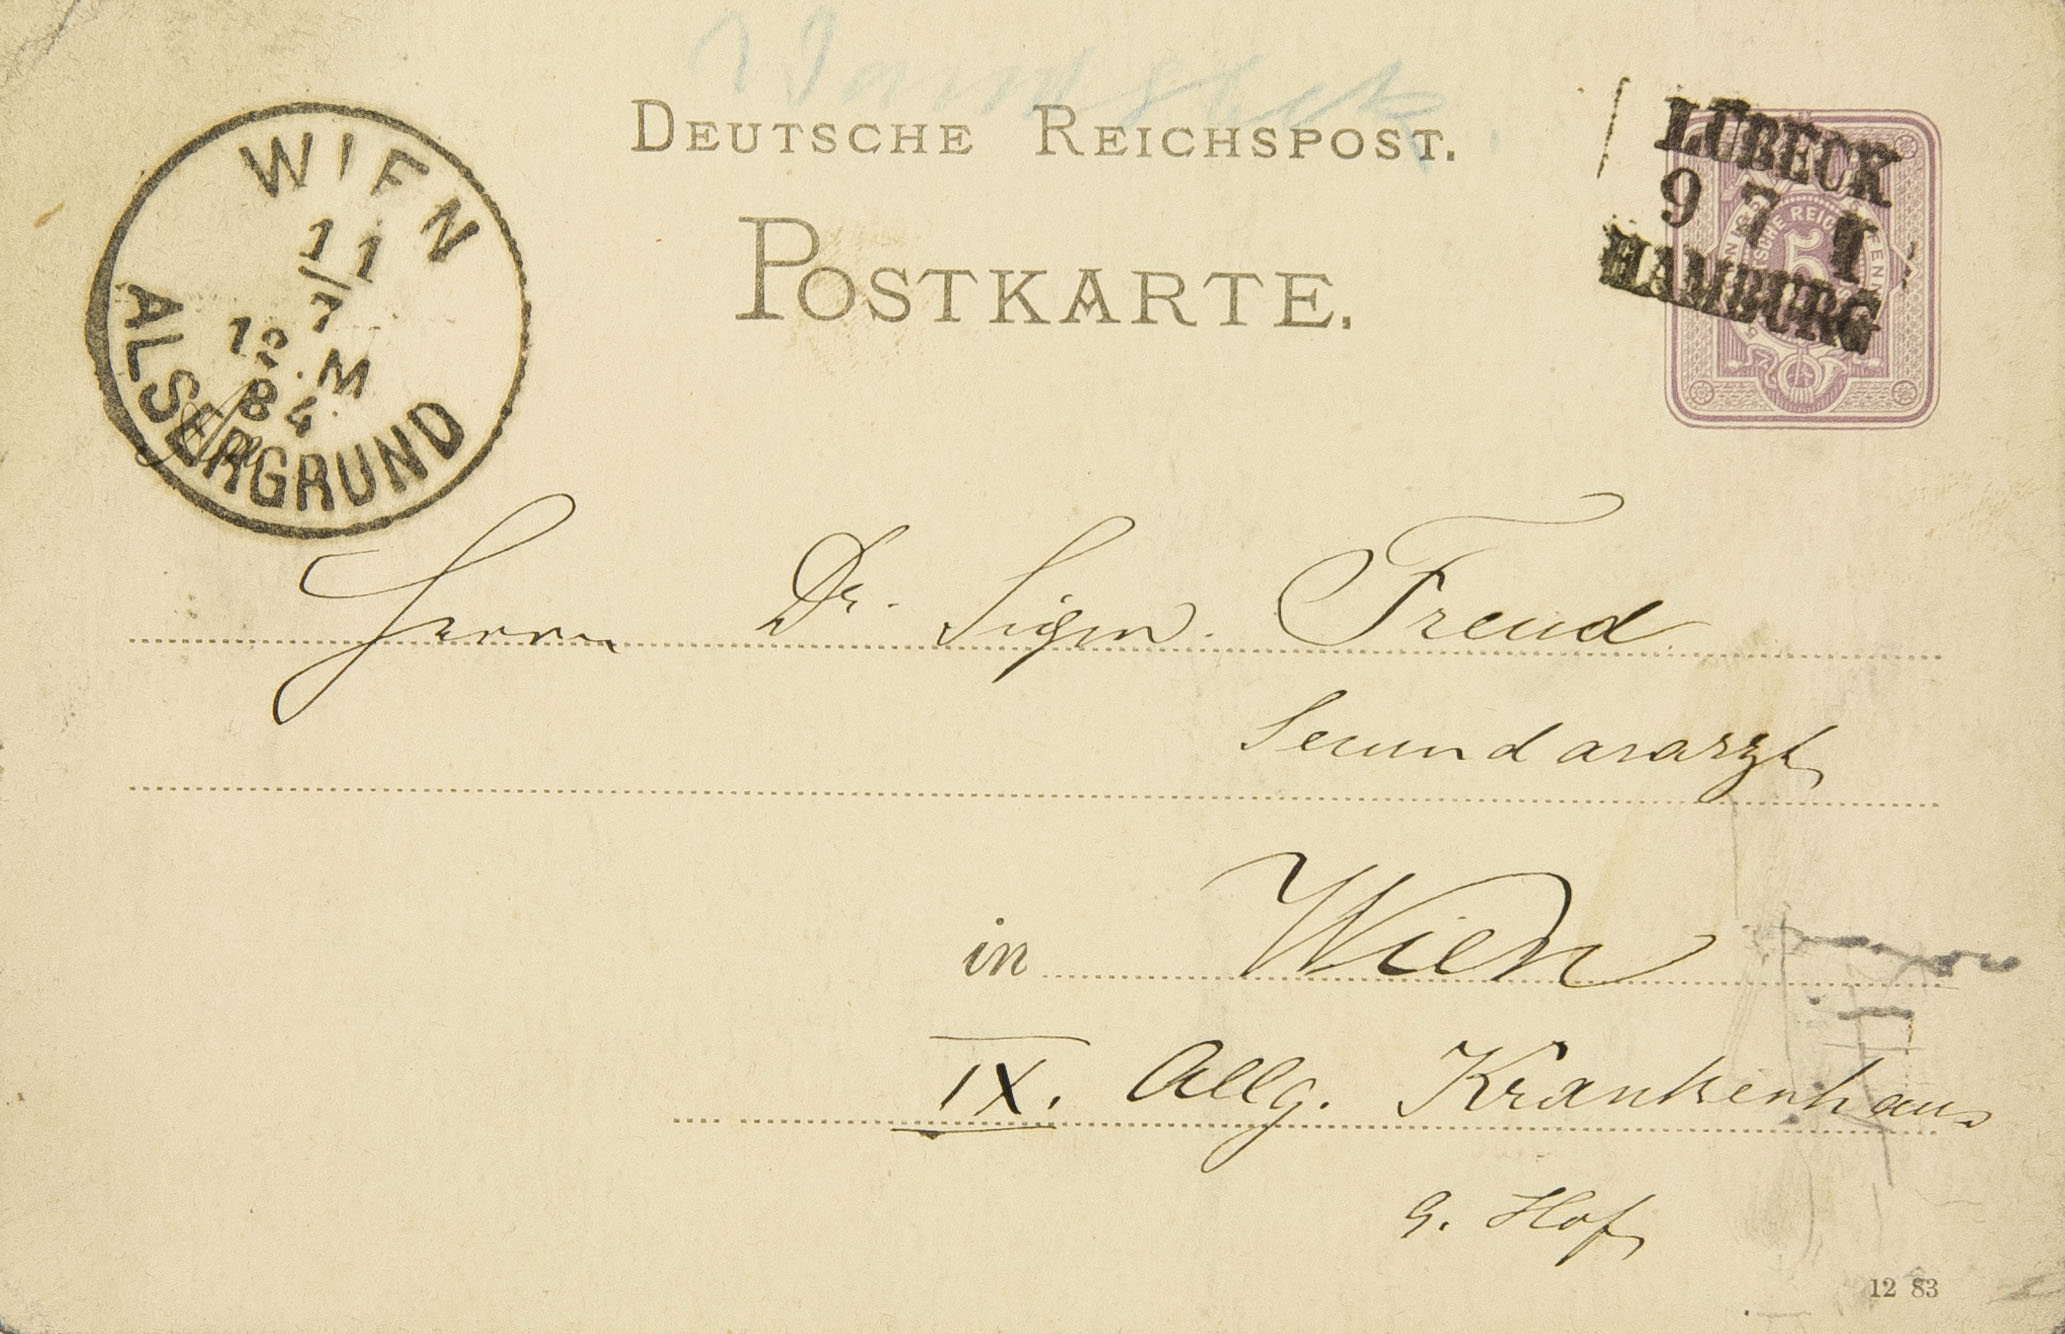 Wandsbek
DEUTSCHE REICHSPOST.
POSTKARTE.
WIEN
11
7
12. M
84
ALSERGRUND
LÜBECK
9 7 I
HAMBURG
DEUTSCHE REICHS
5
Herrn Dr. Sigm. Freud
Secundararzt
in Wien
IX. Allg. Krankenhaus
9. Hof
12 83